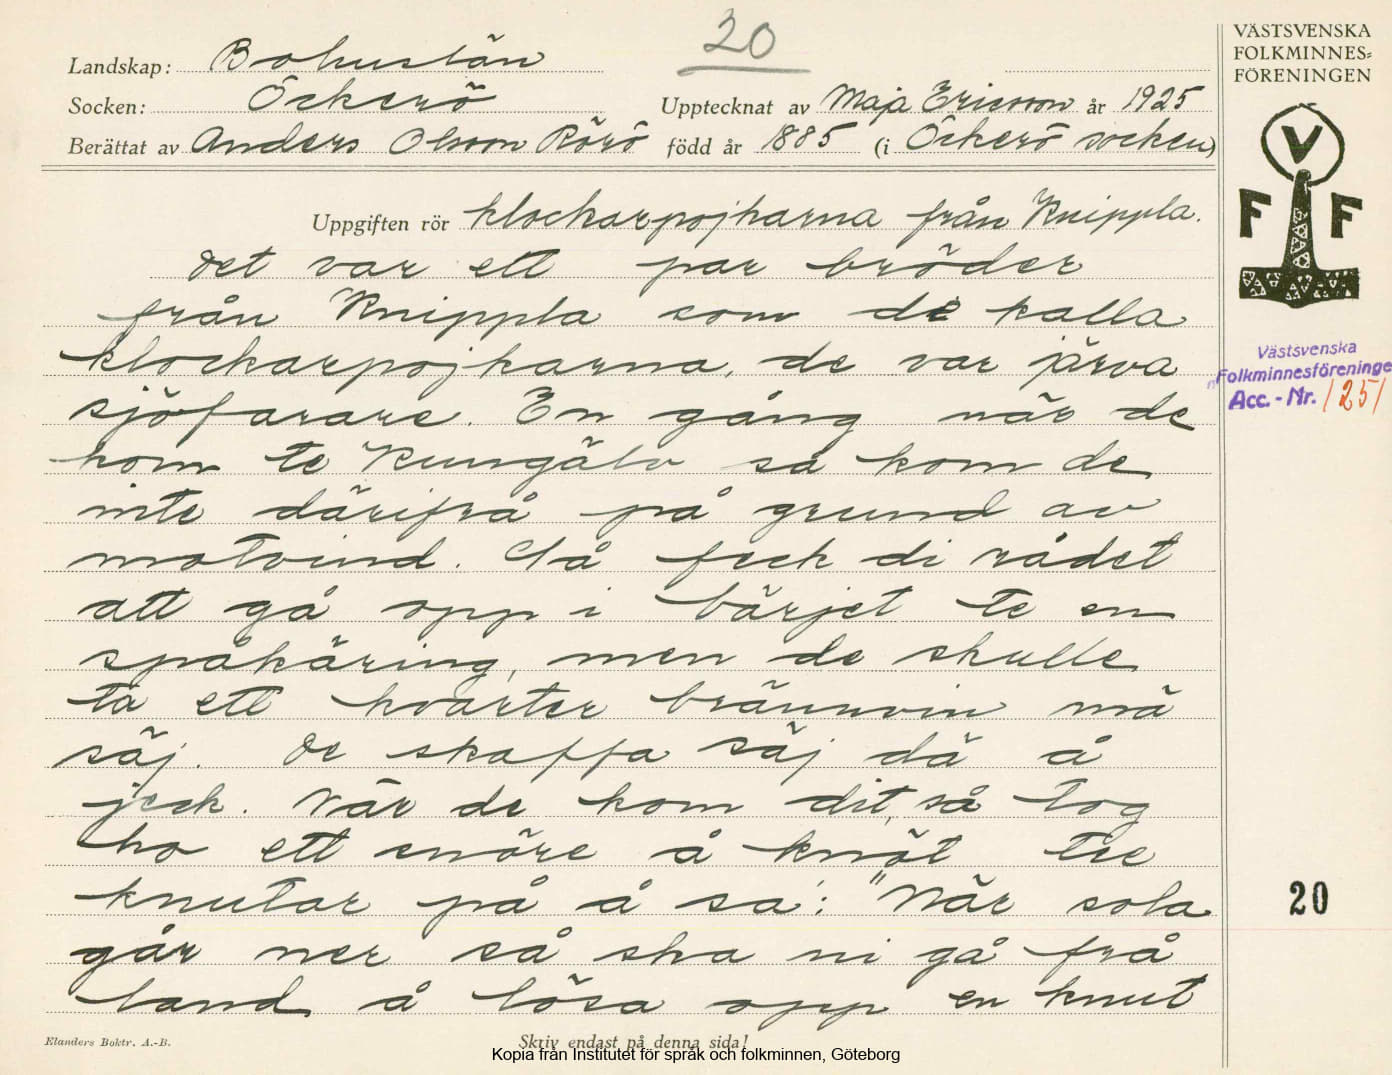 20
VÄSTSVENSKA
FOLKMINNES=
FÖRENINGEN
Landskap: Bohuslän
Socken: Öckerö
Upptecknat av Maja Ericsson år 1925
Berättat av Anders Olsson Rörö född år 1885 (i Öckerö socken)
V
F F
Uppgiften rör klockarpojkarna från Knippla.
Det var ett par bröder
från Knippla som de kalla
klockarpojkarna, de var järva
sjöfarare. En gång när de
kom te Kungälv så kom de
inte därifrå på grund av
motvind. Så feck di rådet
att gå opp i bärjet te en
spåkäring, men de skulle
ta ett kvarter brännvin mä
säj. De skaffa säj dä å
jeck. När de kom dit, så tog
ho ett snöre å knöt tre
knutar på å sa: "När sola
går ner så ska ni gå frå
land å lösa opp en knut
Västsvenska
Folkminnesföreninge
Acc. - Nr. 1251
20
Elanders Boktr. A.-B.
Skriv endast på denna sida!
Kopia från Institutet för språk och folkminnen, Göteborg